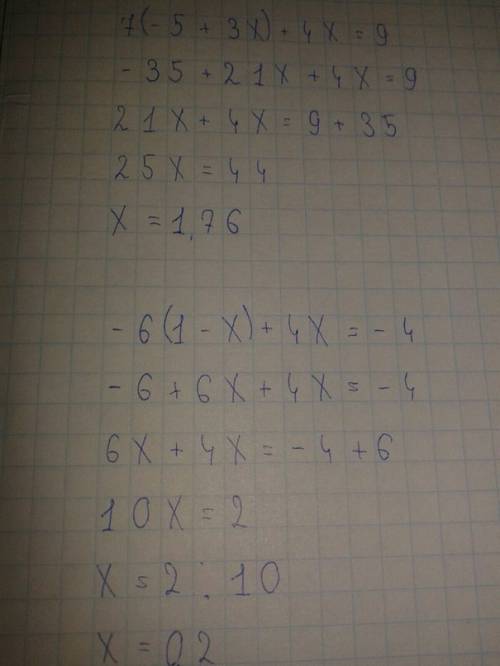 7(-5 + 3X) + 4X = 9
- 35 + 21X + 4X = 9
21X + 4X = 9 + 35
25X = 44
X = 1,76
- 6(1 - X) + 4X = - 4
- 6 + 6X + 4X = - 4
6X + 4X = - 4 + 6
10X = 2
X = 2 : 10
X = 0 2